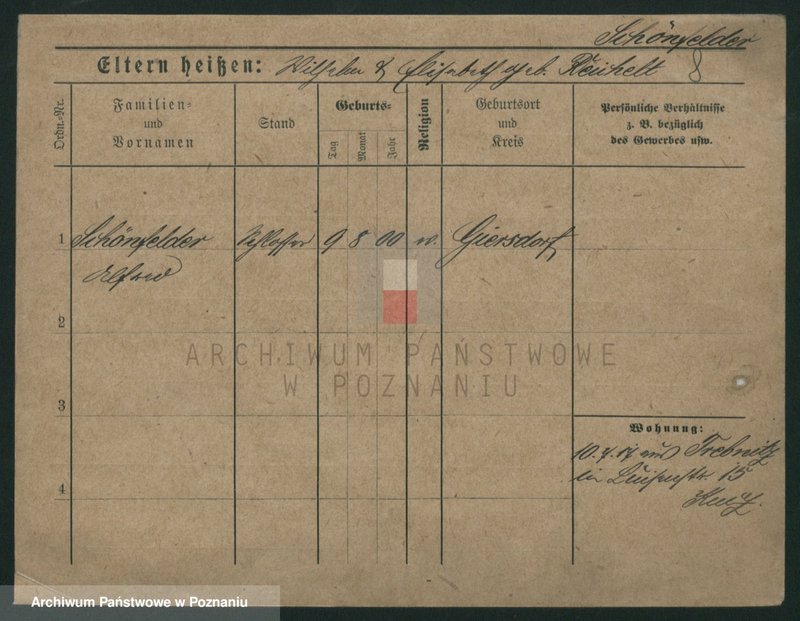 Schönfelder
Eltern heißen: Wilhelm & Elisabeth geb. Reichelt 8
Ordn.-Nr.
Familien-
und
Vornamen
Stand
Geburts-
Tag
Monat
Jahr
Religion
Geburtsort
und
Kreis
Persönliche Verhältnisse
z. B. bezüglich
des Gewerbes usw.
1 Schönfelder Schlosser 9 8 00 Giersdorf
Alfred
2
ARCHIWUM PAŃSTWOWE
W POZNANIU
3
Wohnung:
10.7.17 aus Trebnitz
Luisenstr. 15
4
Archiwum Państwowe w Poznaniu